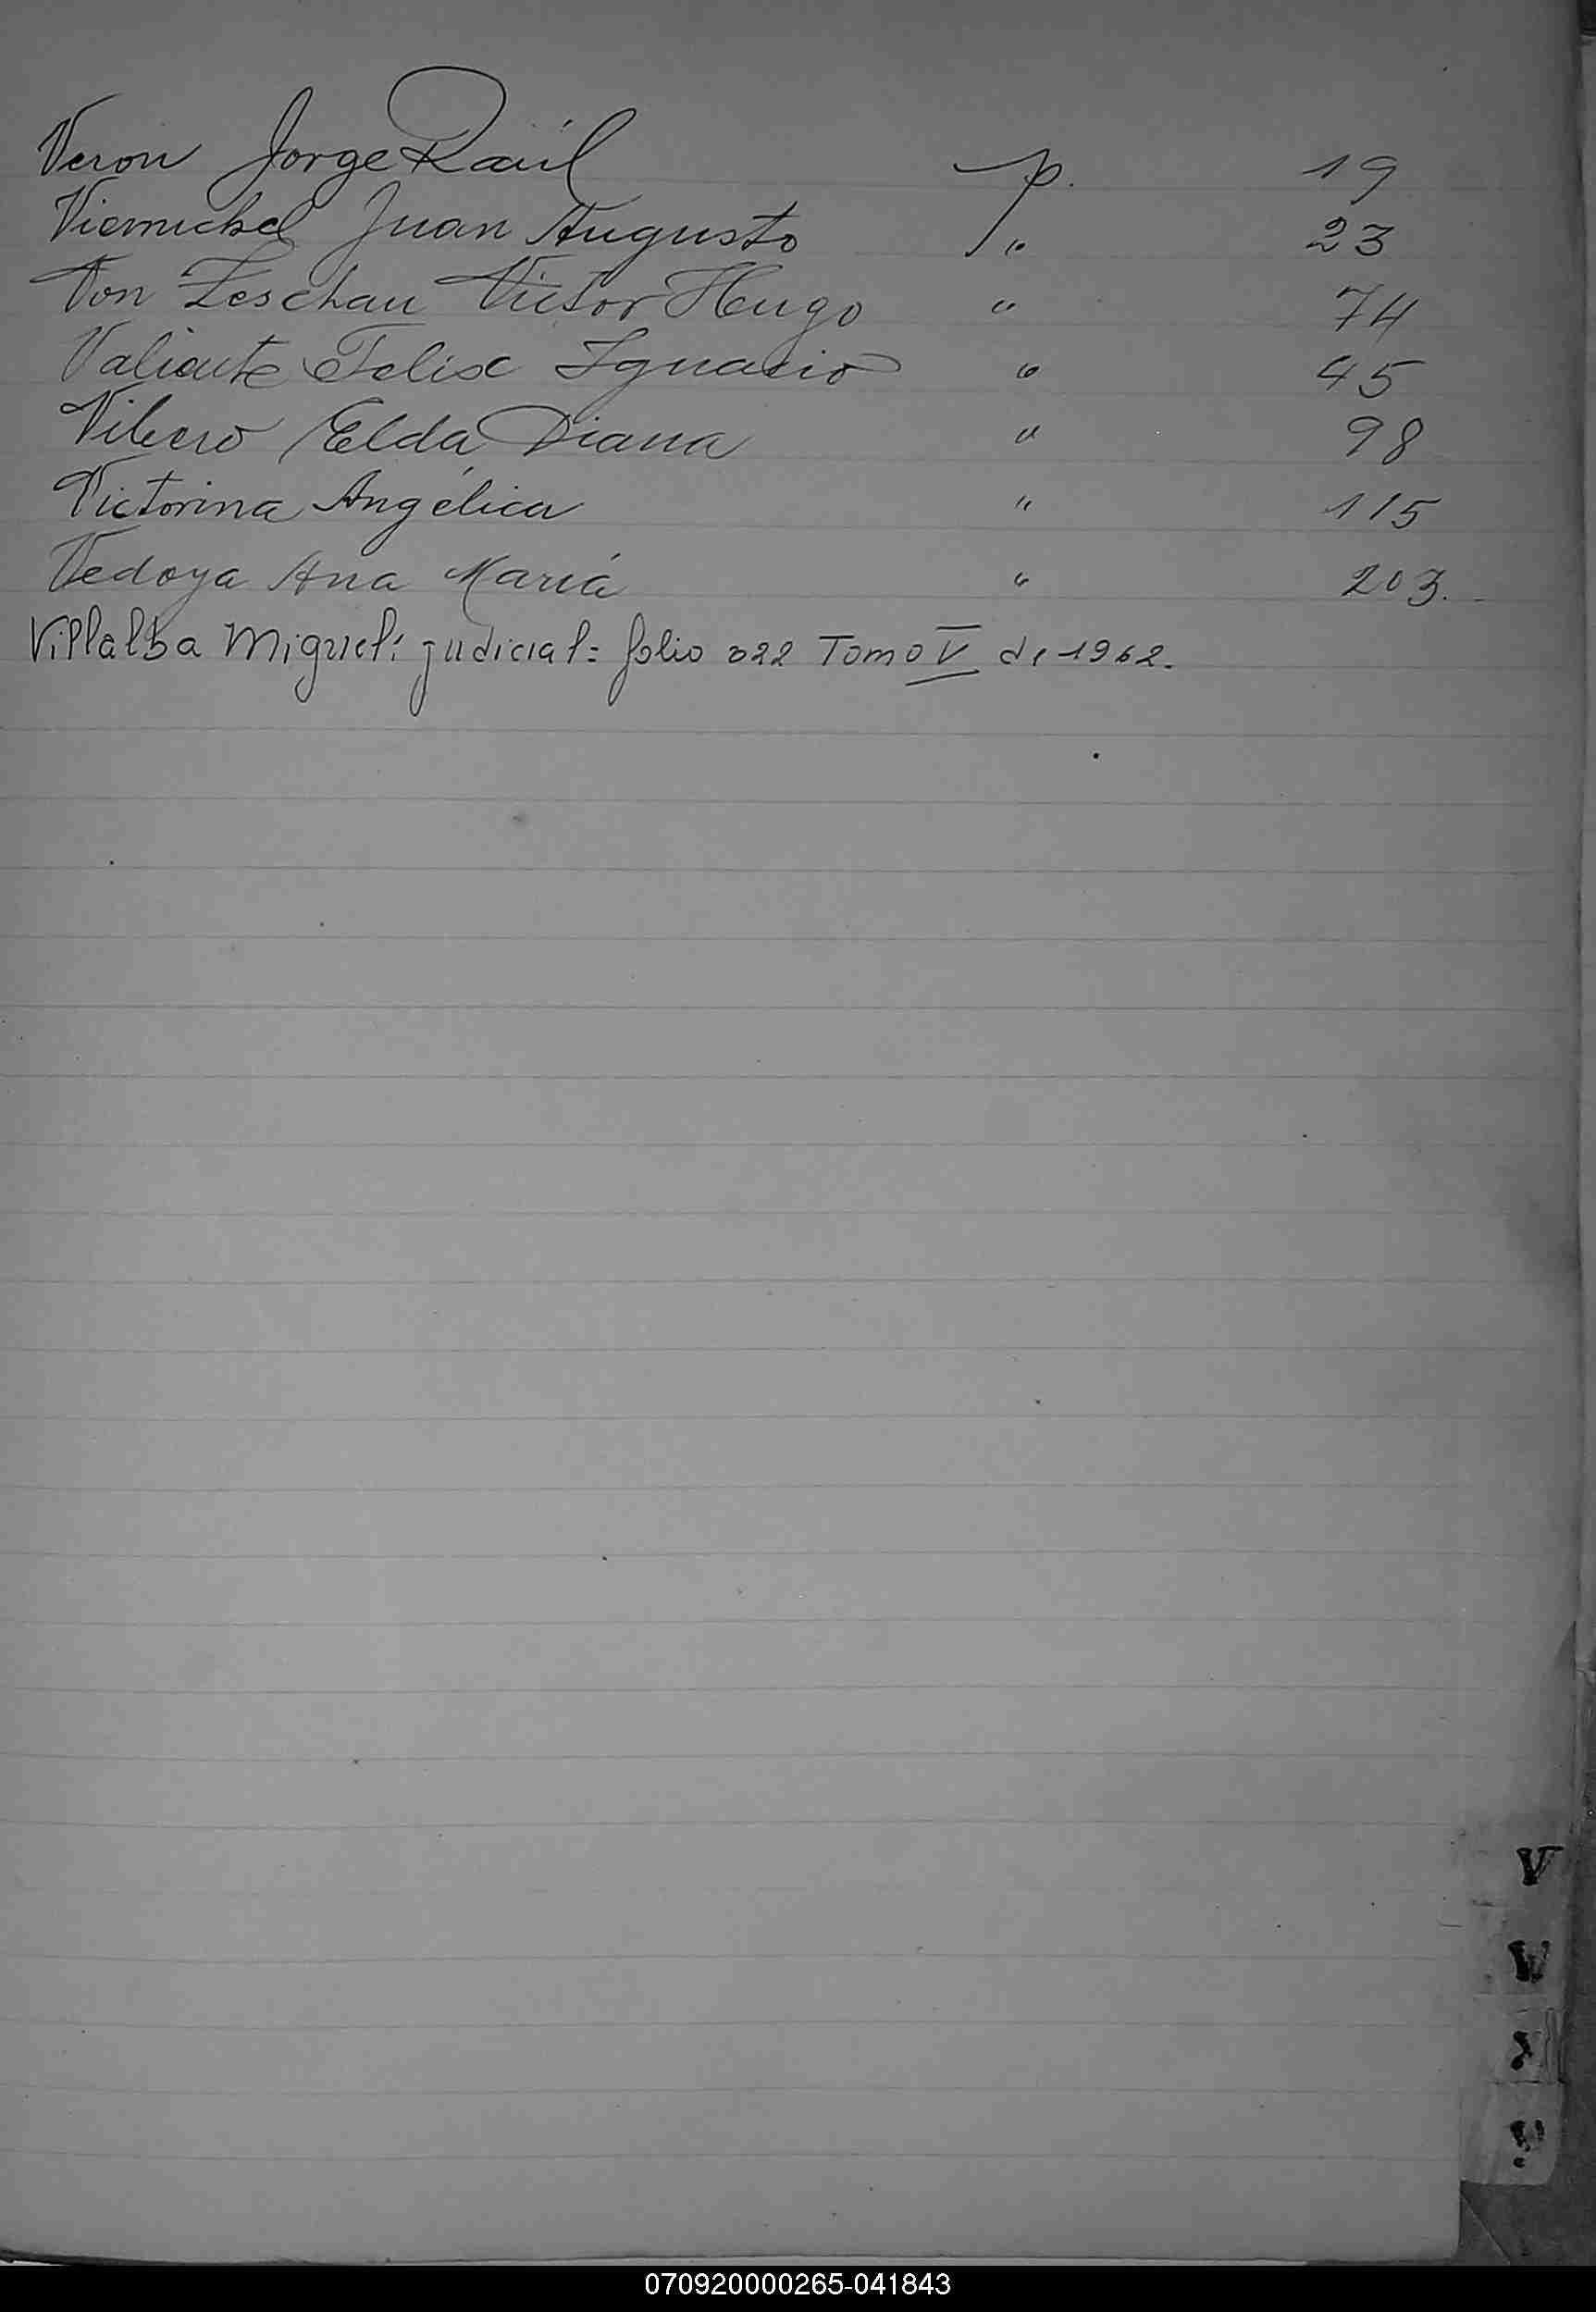 Veron Jorge Raúl p. 19
Viernickel Juan Augusto " 23
Von Zeschau Victor Hugo " 74
Valiente Felix Ignacio " 45
Vibero Elda Diana " 98
Victorina Angélica " 115
Vedoya Ana María " 203.
Villalba Miguel: judicial: folio 022 Tomo V de 1962.
V
W
070920000265-041843